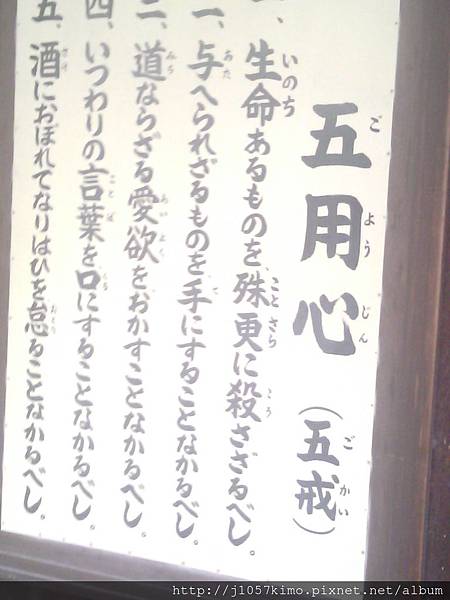 五用心(五戒)
ご よう じん ご かい
一、生命あるものを、殊更に殺さざるべし。
いのち ことさら
一、与へられざるものを、手にすることなかるべし。
あた て
二、道ならざる愛欲をおかすことなかるべし。
みち あい よく
四、いつわりの言葉を口にすることなかるべし。
ことば くち
五、酒におぼれてなりはひを怠ることなかるべし。
さけ おこた
http://j1057kimo.pixnet.net/album